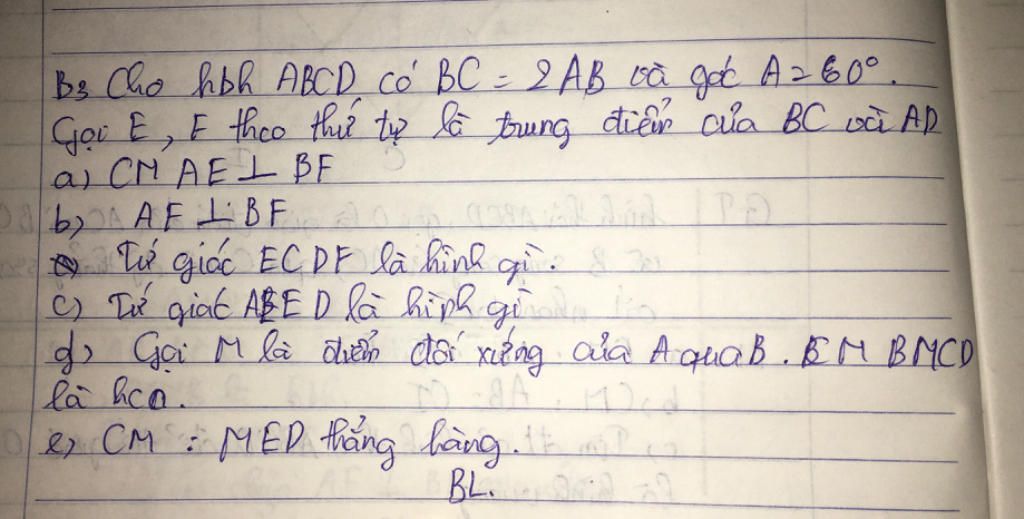 B3 Cho hbh ABCD có BC = 2AB và góc A = 60°.
Gọi E, F theo thứ tự là trung điểm của BC và AD
a) CM AE ⊥ BF
b) AF ⊥ BF
Tứ giác ECDF là hình gì.
c) Tứ giác ABED là hình gì
d) Gọi M là điểm đối xứng của A qua B. CM BMCD
là hcn.
e) CM : MED thẳng hàng.
BL.